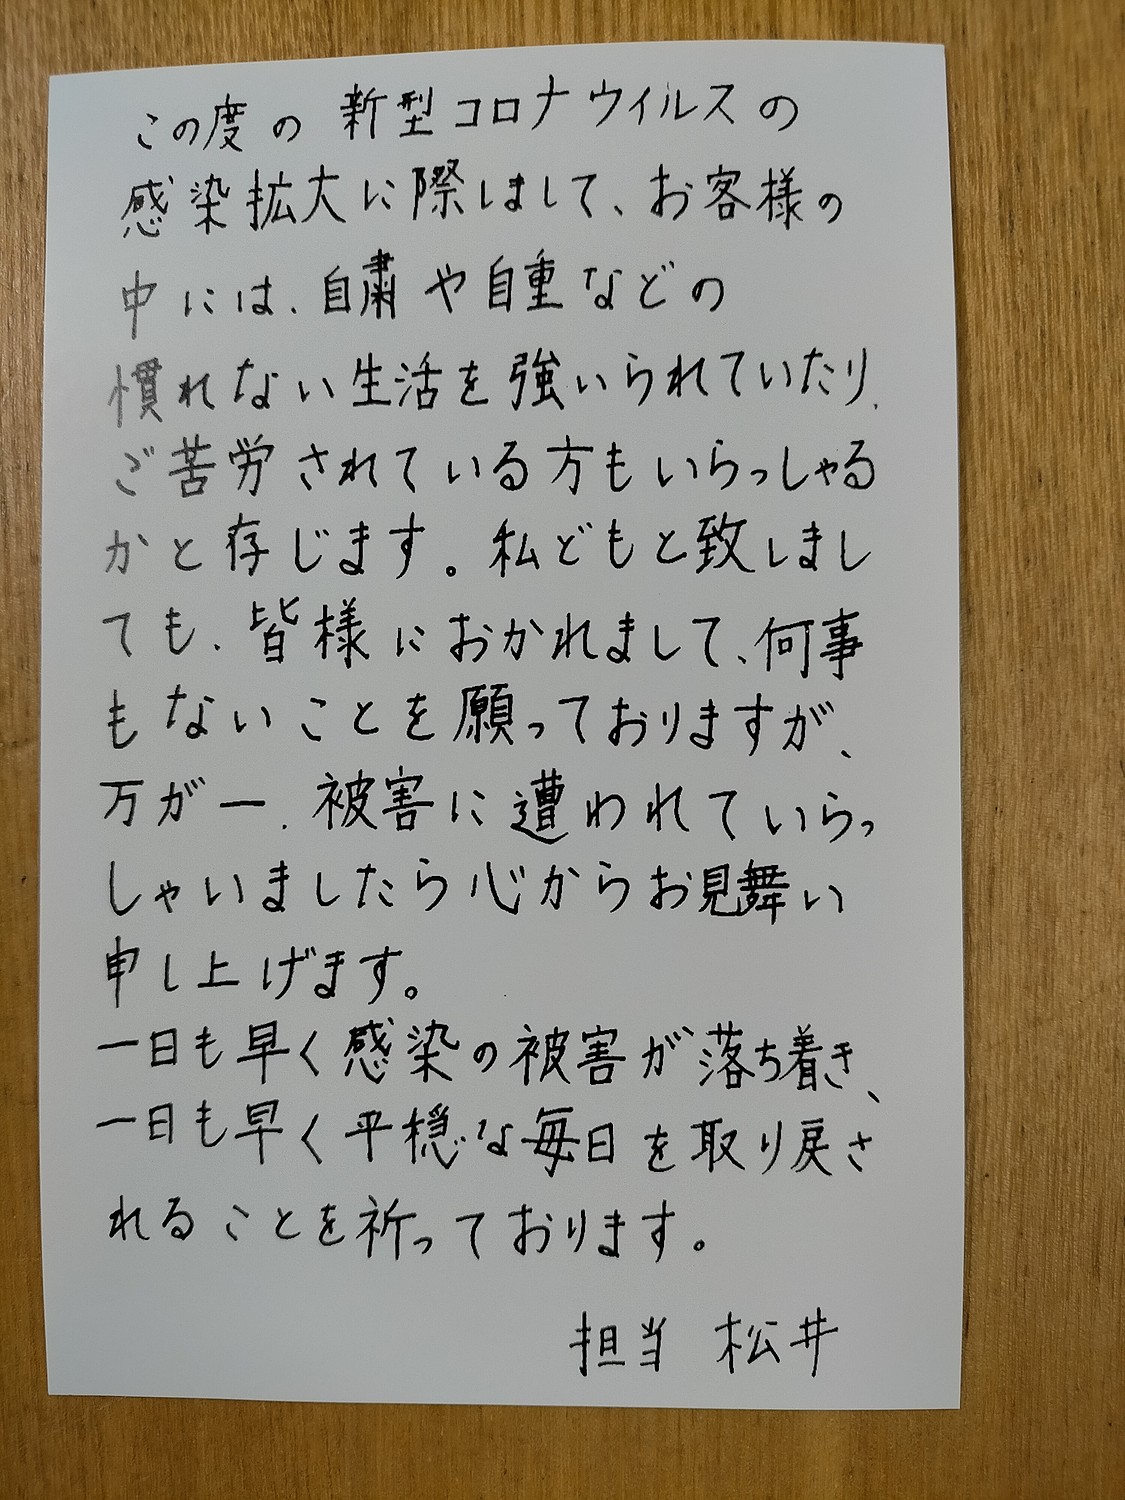 この度の新型コロナウイルスの
感染拡大に際しまして、お客様の
中には、自粛や自重などの
慣れない生活を強いられていたり、
ご苦労されている方もいらっしゃる
かと存じます。私どもと致しまし
ても、皆様におかれまして、何事
もないことを願っておりますが、
万が一、被害に遭われていらっ
しゃいましたら心からお見舞い
申し上げます。
一日も早く感染の被害が落ち着き、
一日も早く平穏な毎日を取り戻さ
れることを祈っております。
担当 松井